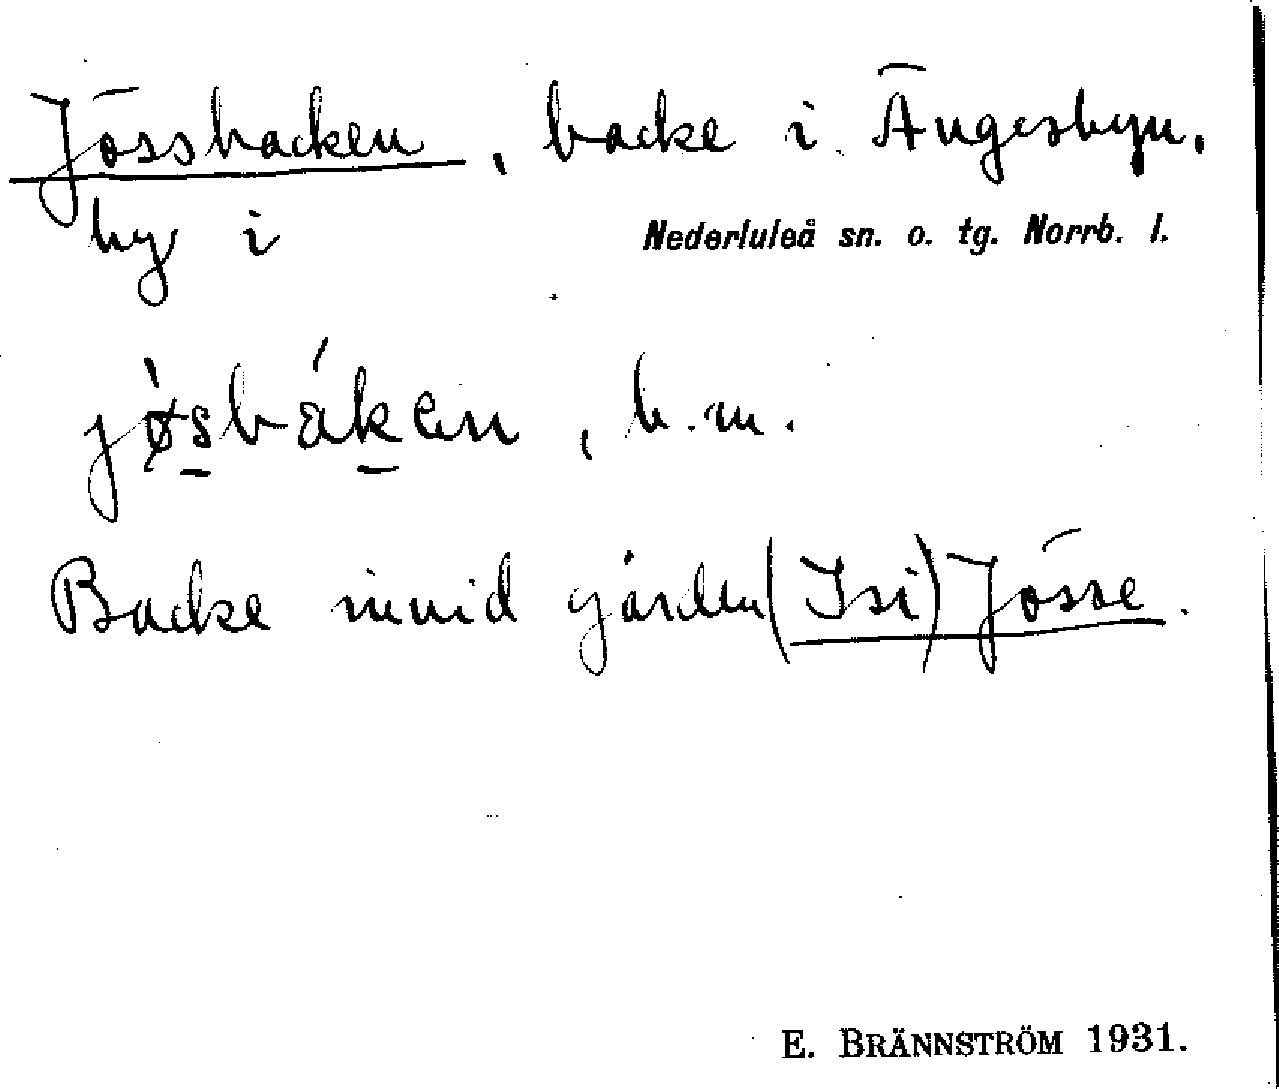 Jössbacken, backe i Ängesbyn,
by i Nederluleå sn. o. tg. Norrb. l.
jø̀sbáken, b. m.
Backe invid gården (Isi) Jösse.
E. BRÄNNSTRÖM 1931.